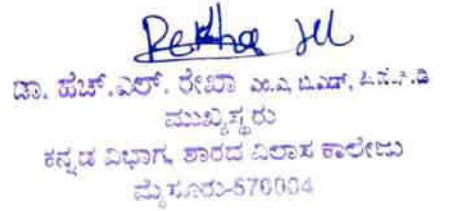 Rekha
ಡಾ. ಹೆಚ್.ಎಲ್. ರೇಖಾ ಎಂ.ಎ, ಬಿ.ಎಡ್, ಪಿ.ಹೆಚ್.ಡಿ
ಮುಖ್ಯಸ್ಥರು
ಕನ್ನಡ ವಿಭಾಗ, ಶಾರದ ವಿಲಾಸ ಕಾಲೇಜು
ಮೈಸೂರು-570004